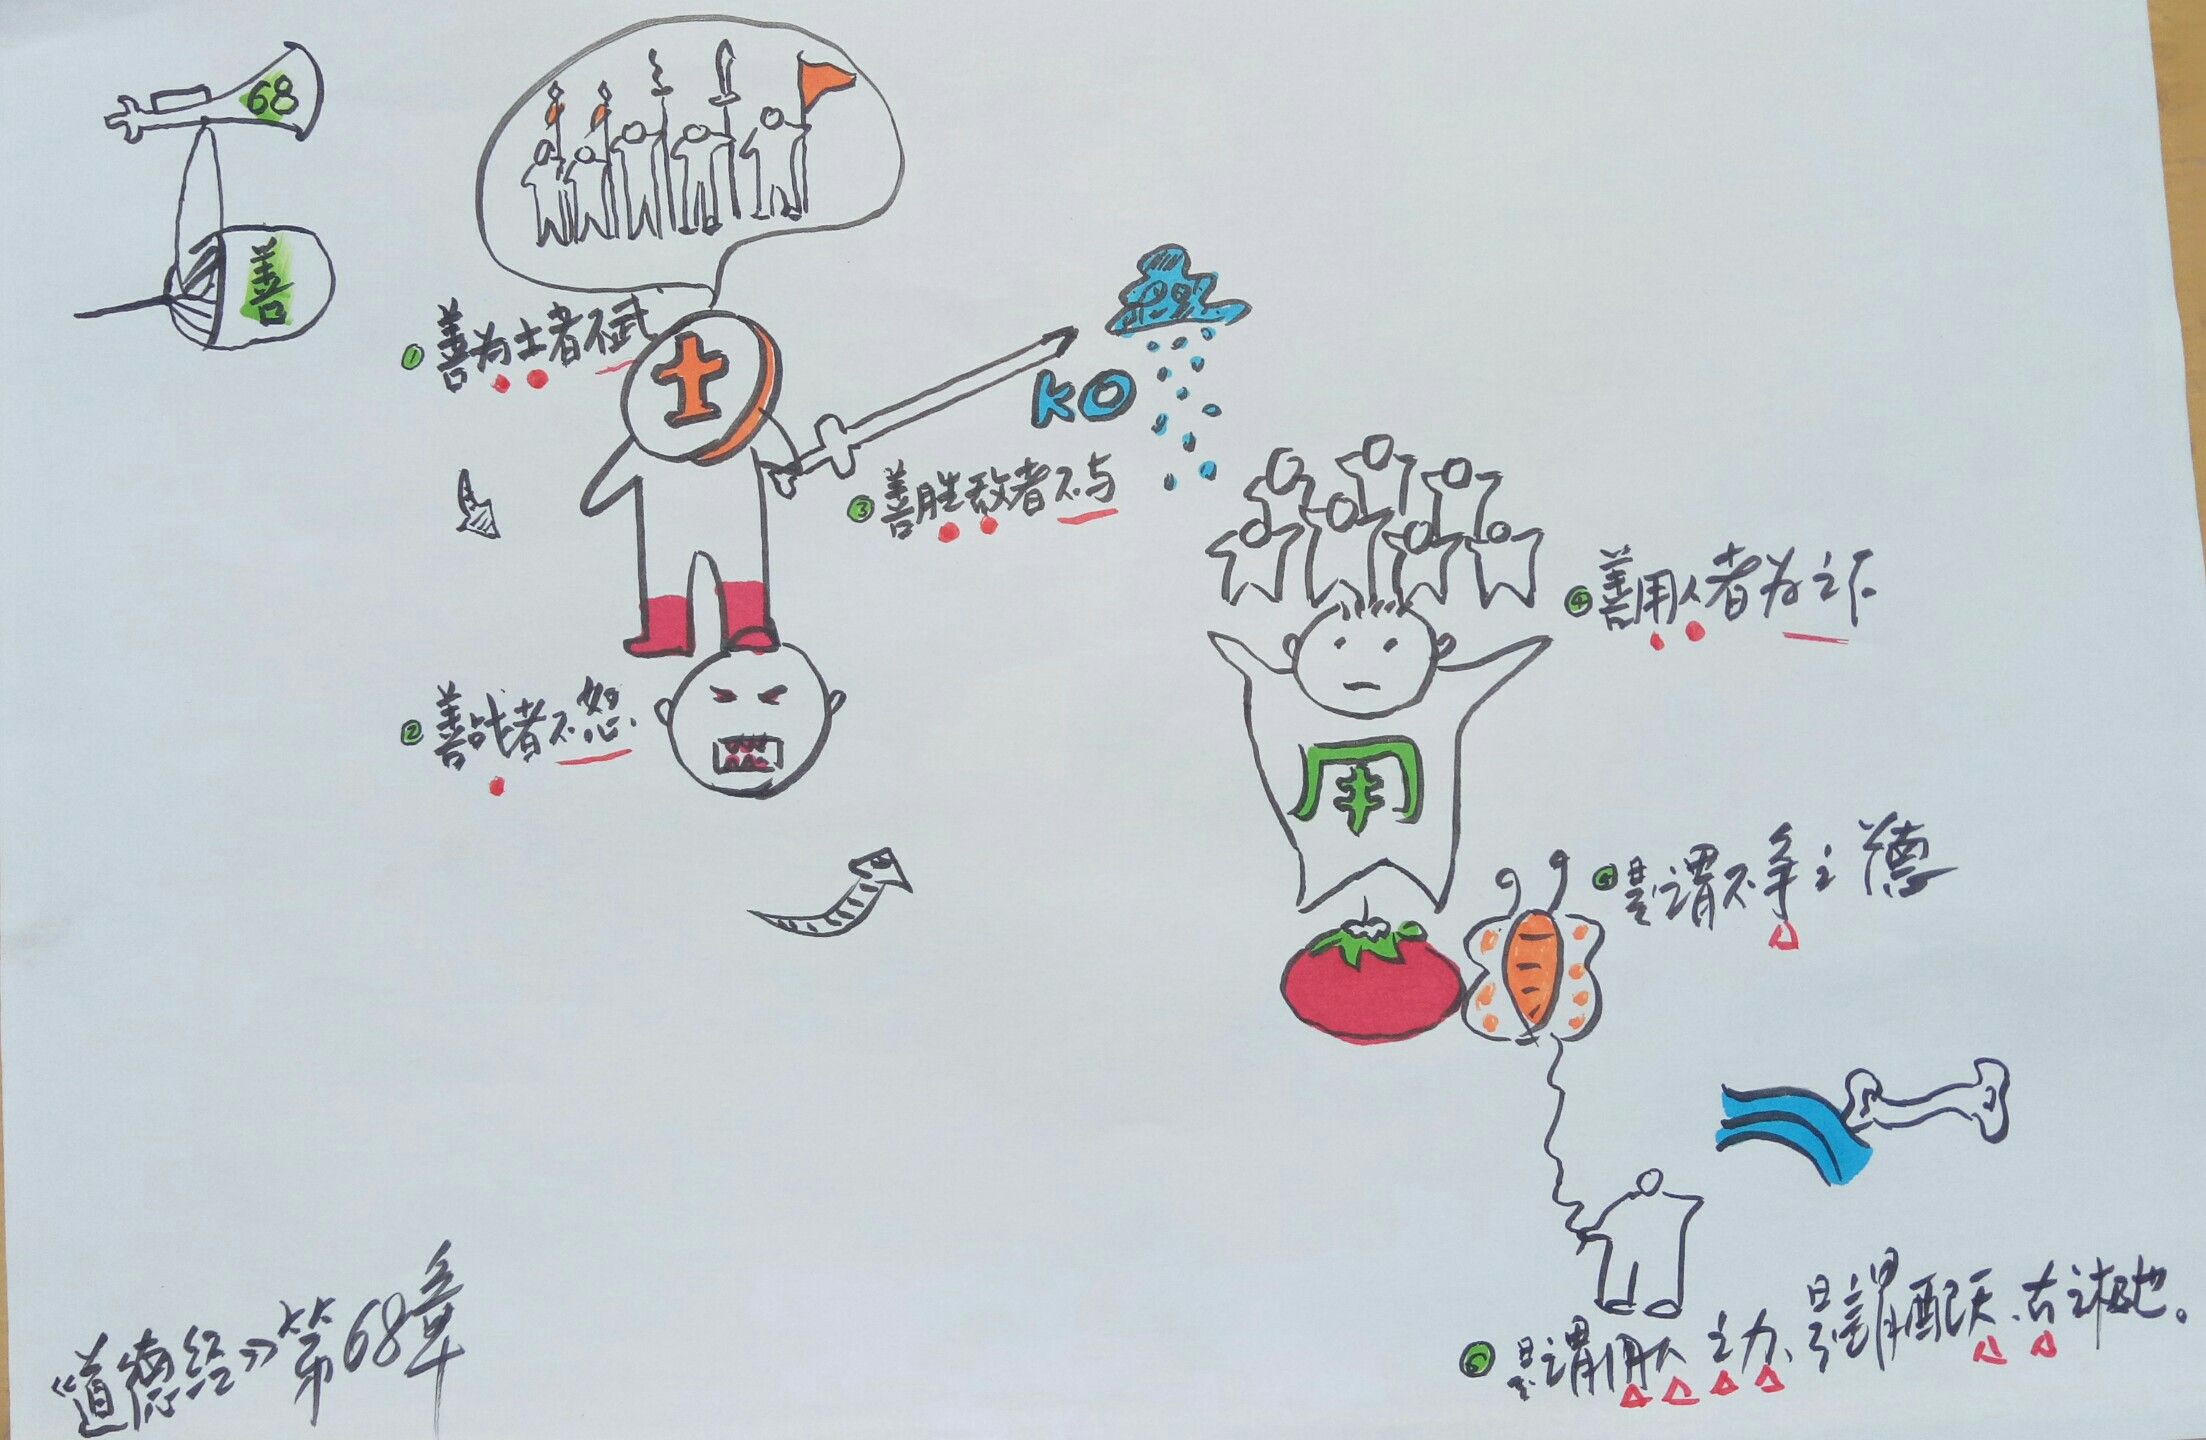 68
善
① 善为士者不武
士
KO
③ 善胜敌者不与
④ 善用人者为之下
② 善战者不怒
用
⑤ 是谓不争之德
⑥ 是谓用人之力、是谓配天、古之极也。
《道德经》第68章